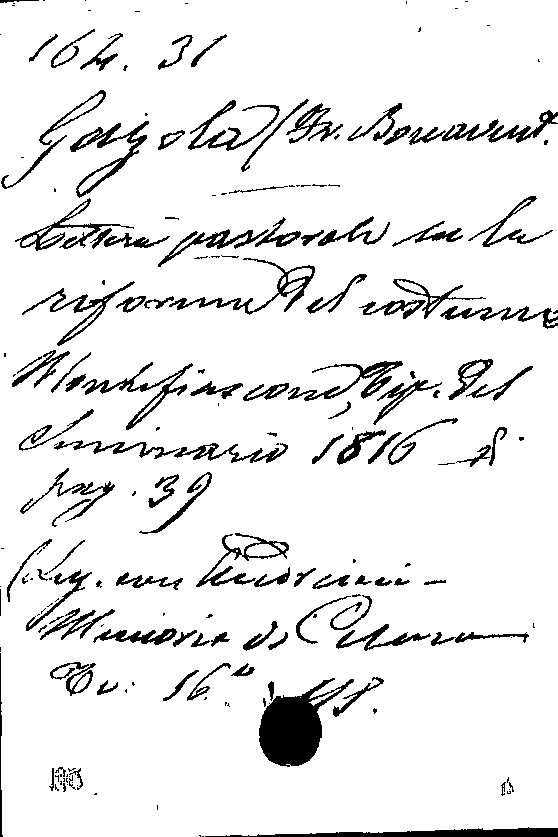 164. 31
Gazola (Fr. Bonavent.
Lettera pastorale su la
riforma del costume
Montefiascone, Tip. del
Seminario 1816 8.
pag. 39
(Leg. con
Memorie di Cesare
To. 16.°